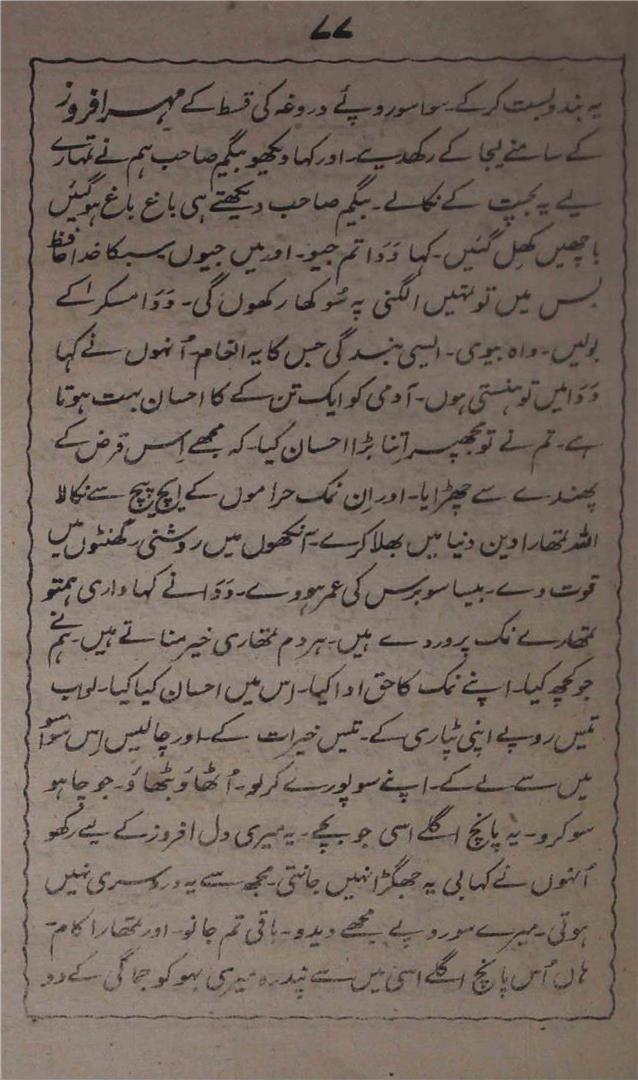 ۷۷
یہ بندوبست کرکے۔ سوا سو روپئے دروغہ کی قسط کے مہر افروز
کے سامنے لیجا کے رکھدیے۔ اور کہا دیکھو بیگم صاحب ہم نے تمہارے
لیے یہ بچت کے نکالے۔ بیگم صاحب دیکھتے ہی باغ باغ ہوگئیں
باچھیں کھل گئیں۔ کہا دَدا تم جیو۔ اور میں جیوں سبکا خدا حافظ
بس میں تو تمہیں الگنی پہ سُوکھا رکھوں گی۔ دَدا مسکرا کے
بولیں۔ واہ بیوی۔ ایسی بندگی جس کا یہ انعام۔ اُنہوں نے کہا
دَدا میں تو ہنستی ہوں۔ آدمی کو ایک تن کے کا احسان بہت ہوتا
ہے۔ تم نے تو مجھپر اِتنا بڑا احسان کیا۔ کہ مجھے اِس قرض کے
پھندے سے چھڑایا۔ اور اِن نمک حراموں کے ایچ پیچ سے نکالا
اللہ تمھارا دین دنیا میں بھلا کرے۔ آنکھوں میں روشنی گھٹنوں میں
قوت دے۔ بیسا سو برس کی عمر ہووے۔ دَدا نے کہا واری ہمتو
تمھارے نمک پروردے ہیں۔ ہر دم تمھاری خیر مناتے ہیں۔ ہم نے
جو کچھ کیا۔ اپنے نمک کا حق ادا کیا۔ اس میں احسان کیا کیا۔ لو اب
تیس روپے اپنی پٹاری کے۔ تیس خیرات کے۔ اور چالیس اِس سوا سو
میں سے لے کے۔ اپنے سو پورے کر لو۔ اُٹھاؤ بٹھاؤ۔ جو چاہو
سو کرو۔ یہ پانچ اگلے اسی جو بچے۔ یہ میری دل افروز کے لیے رکھو
اُنہوں نے کہا بی یہ جھگڑا نہیں جانتی۔ مجھ سے یہ دردسری نہیں
ہوتی۔ میرے سو روپے مجھے دیدو۔ باقی تم جانو۔ اور تمھارا کام۔
ہاں اُس پانچ اگلے اسی میں سے پندرہ میری بہو کو جماگی کے دو